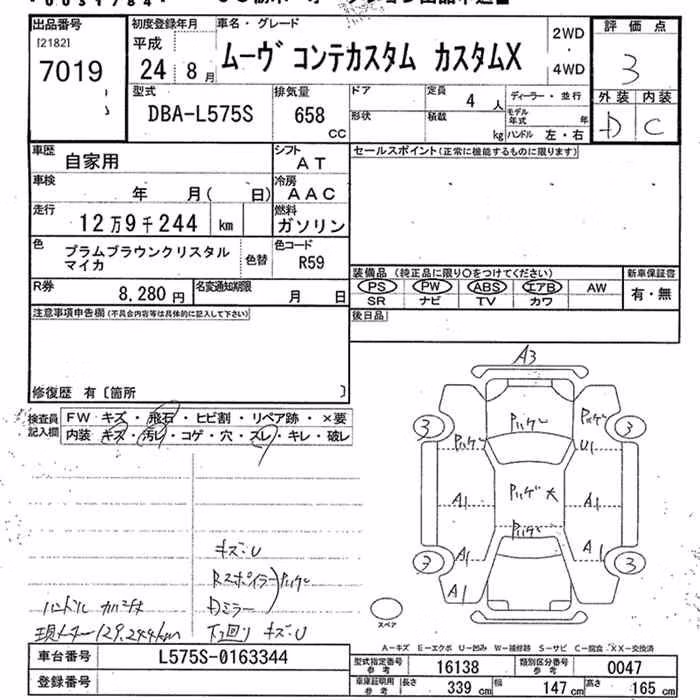 出品番号 初度登録年月 車名・グレード 2WD・4WD 評価点
[2182] 平成
7019 24 8月 ムーヴ コンテカスタム カスタムX 3
型式 排気量 ドア 定員 4人 ディーラー・並行 外装 内装
DBA-L575S 658CC 形状 積載 kg モデル年式 年 D C
ハンドル 左・右
車歴 自家用 シフト AT セールスポイント(正常に機能するものに限ります)
車検 年 月( 日) 冷房 AAC
走行 12万9千244 km 燃料 ガソリン
色 プラムブラウンクリスタルマイカ 色替 色コード R59
装備品 (純正品に限り○をつけてください) 新車保証書
R券 8,280円 名変通知期限 月 日 PS PW ABS エアB AW 有・無
SR ナビ TV カワ
注意事項申告欄(不具合内容等は具体的に記入して下さい) 後日品
修復歴 有〔箇所 〕
検査員記入欄 FW キズ・飛石・ヒビ割・リペア跡・×要
内装 キズ・汚レ・コゲ・穴・スレ・キレ・破レ
A3
ハゲ ハゲ
3 3
ハゲ U1
A1 ハゲ大 A1
ハゲ
A1 A1
3 3
A1
スペア
キズ・U
Rスポイラー ハゲ
Dミラー
ハンドル
現メーター129,244km 下廻りキズ・U
A-キズ E-エクボ U-凹み W-補修跡 S-サビ C-腐食 XX-交換済
車台番号 L575S-0163344 型式指定番号参考 16138 類別区分番号参考 0047
登録番号 車庫証明用参考 長さ 339cm 幅 147cm 高さ 165cm